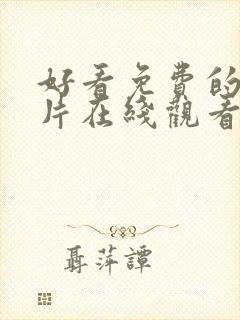 好看免費的
片在綫觀看
聶萍譚